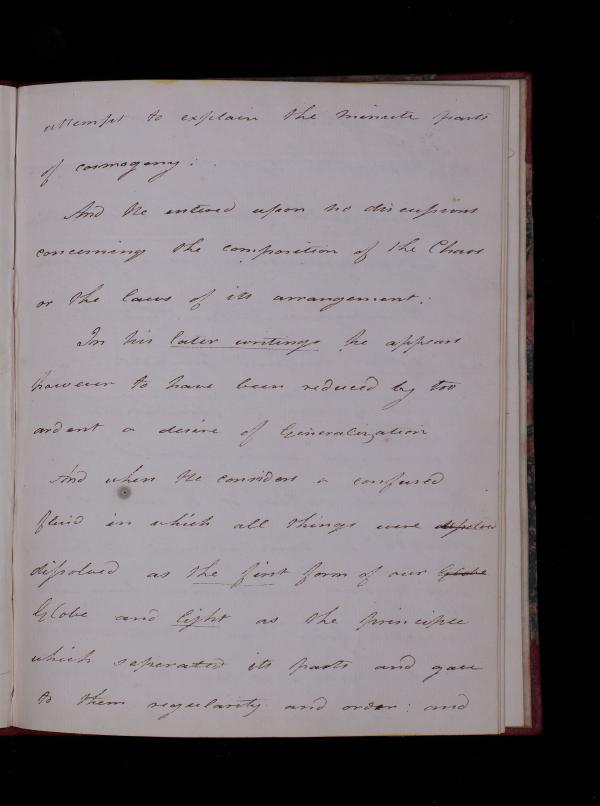 attempt to explain the minute parts
of cosmogony:
And he entered upon no discussions
concerning the composition of the Chaos
or the laws of its arrangement:
In his later writings he appears
however to have been reduced by too
ardent a desire of Generalization
And when he considers a confused
fluid in which all things were
dissolved as the first form of our Globe
Globe and light as the principle
which seperated its parts and gave
to them regularity and order: and